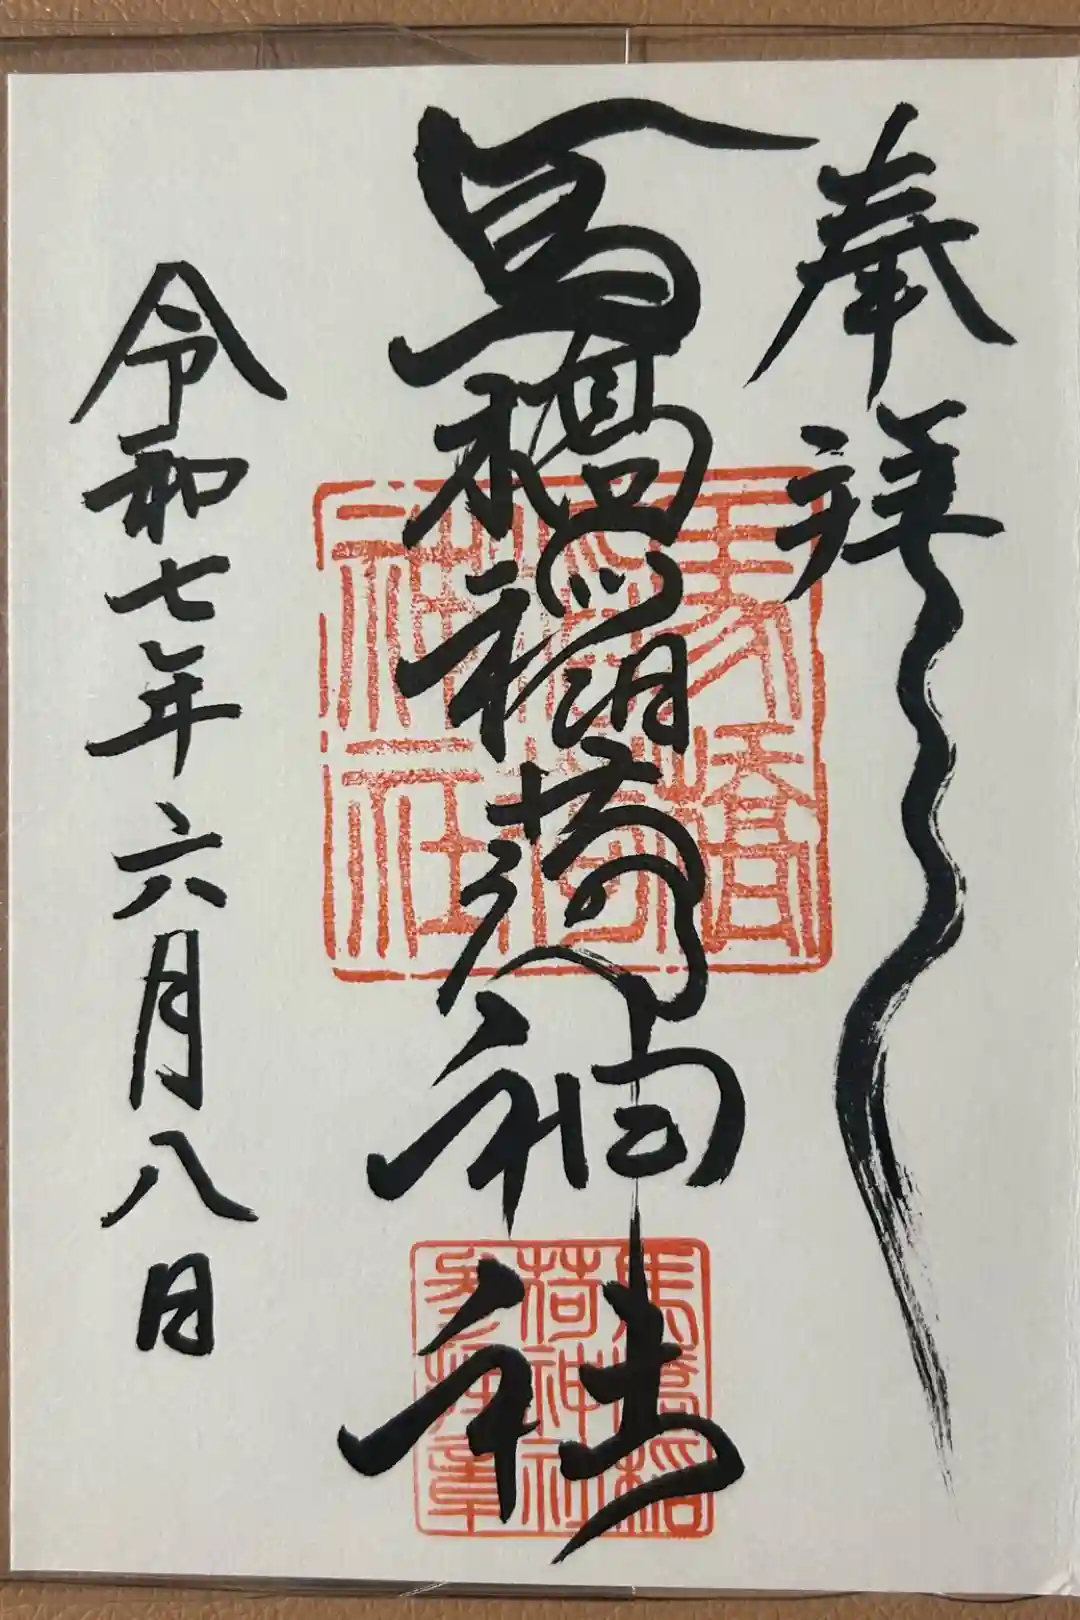 奉拝
馬橋稲荷神社
令和七年六月八日
馬橋
稲荷
神社
馬橋稲
荷神社
参拝章